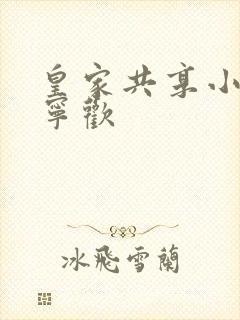 皇家共享小
寧歡
冰飛雪蘭